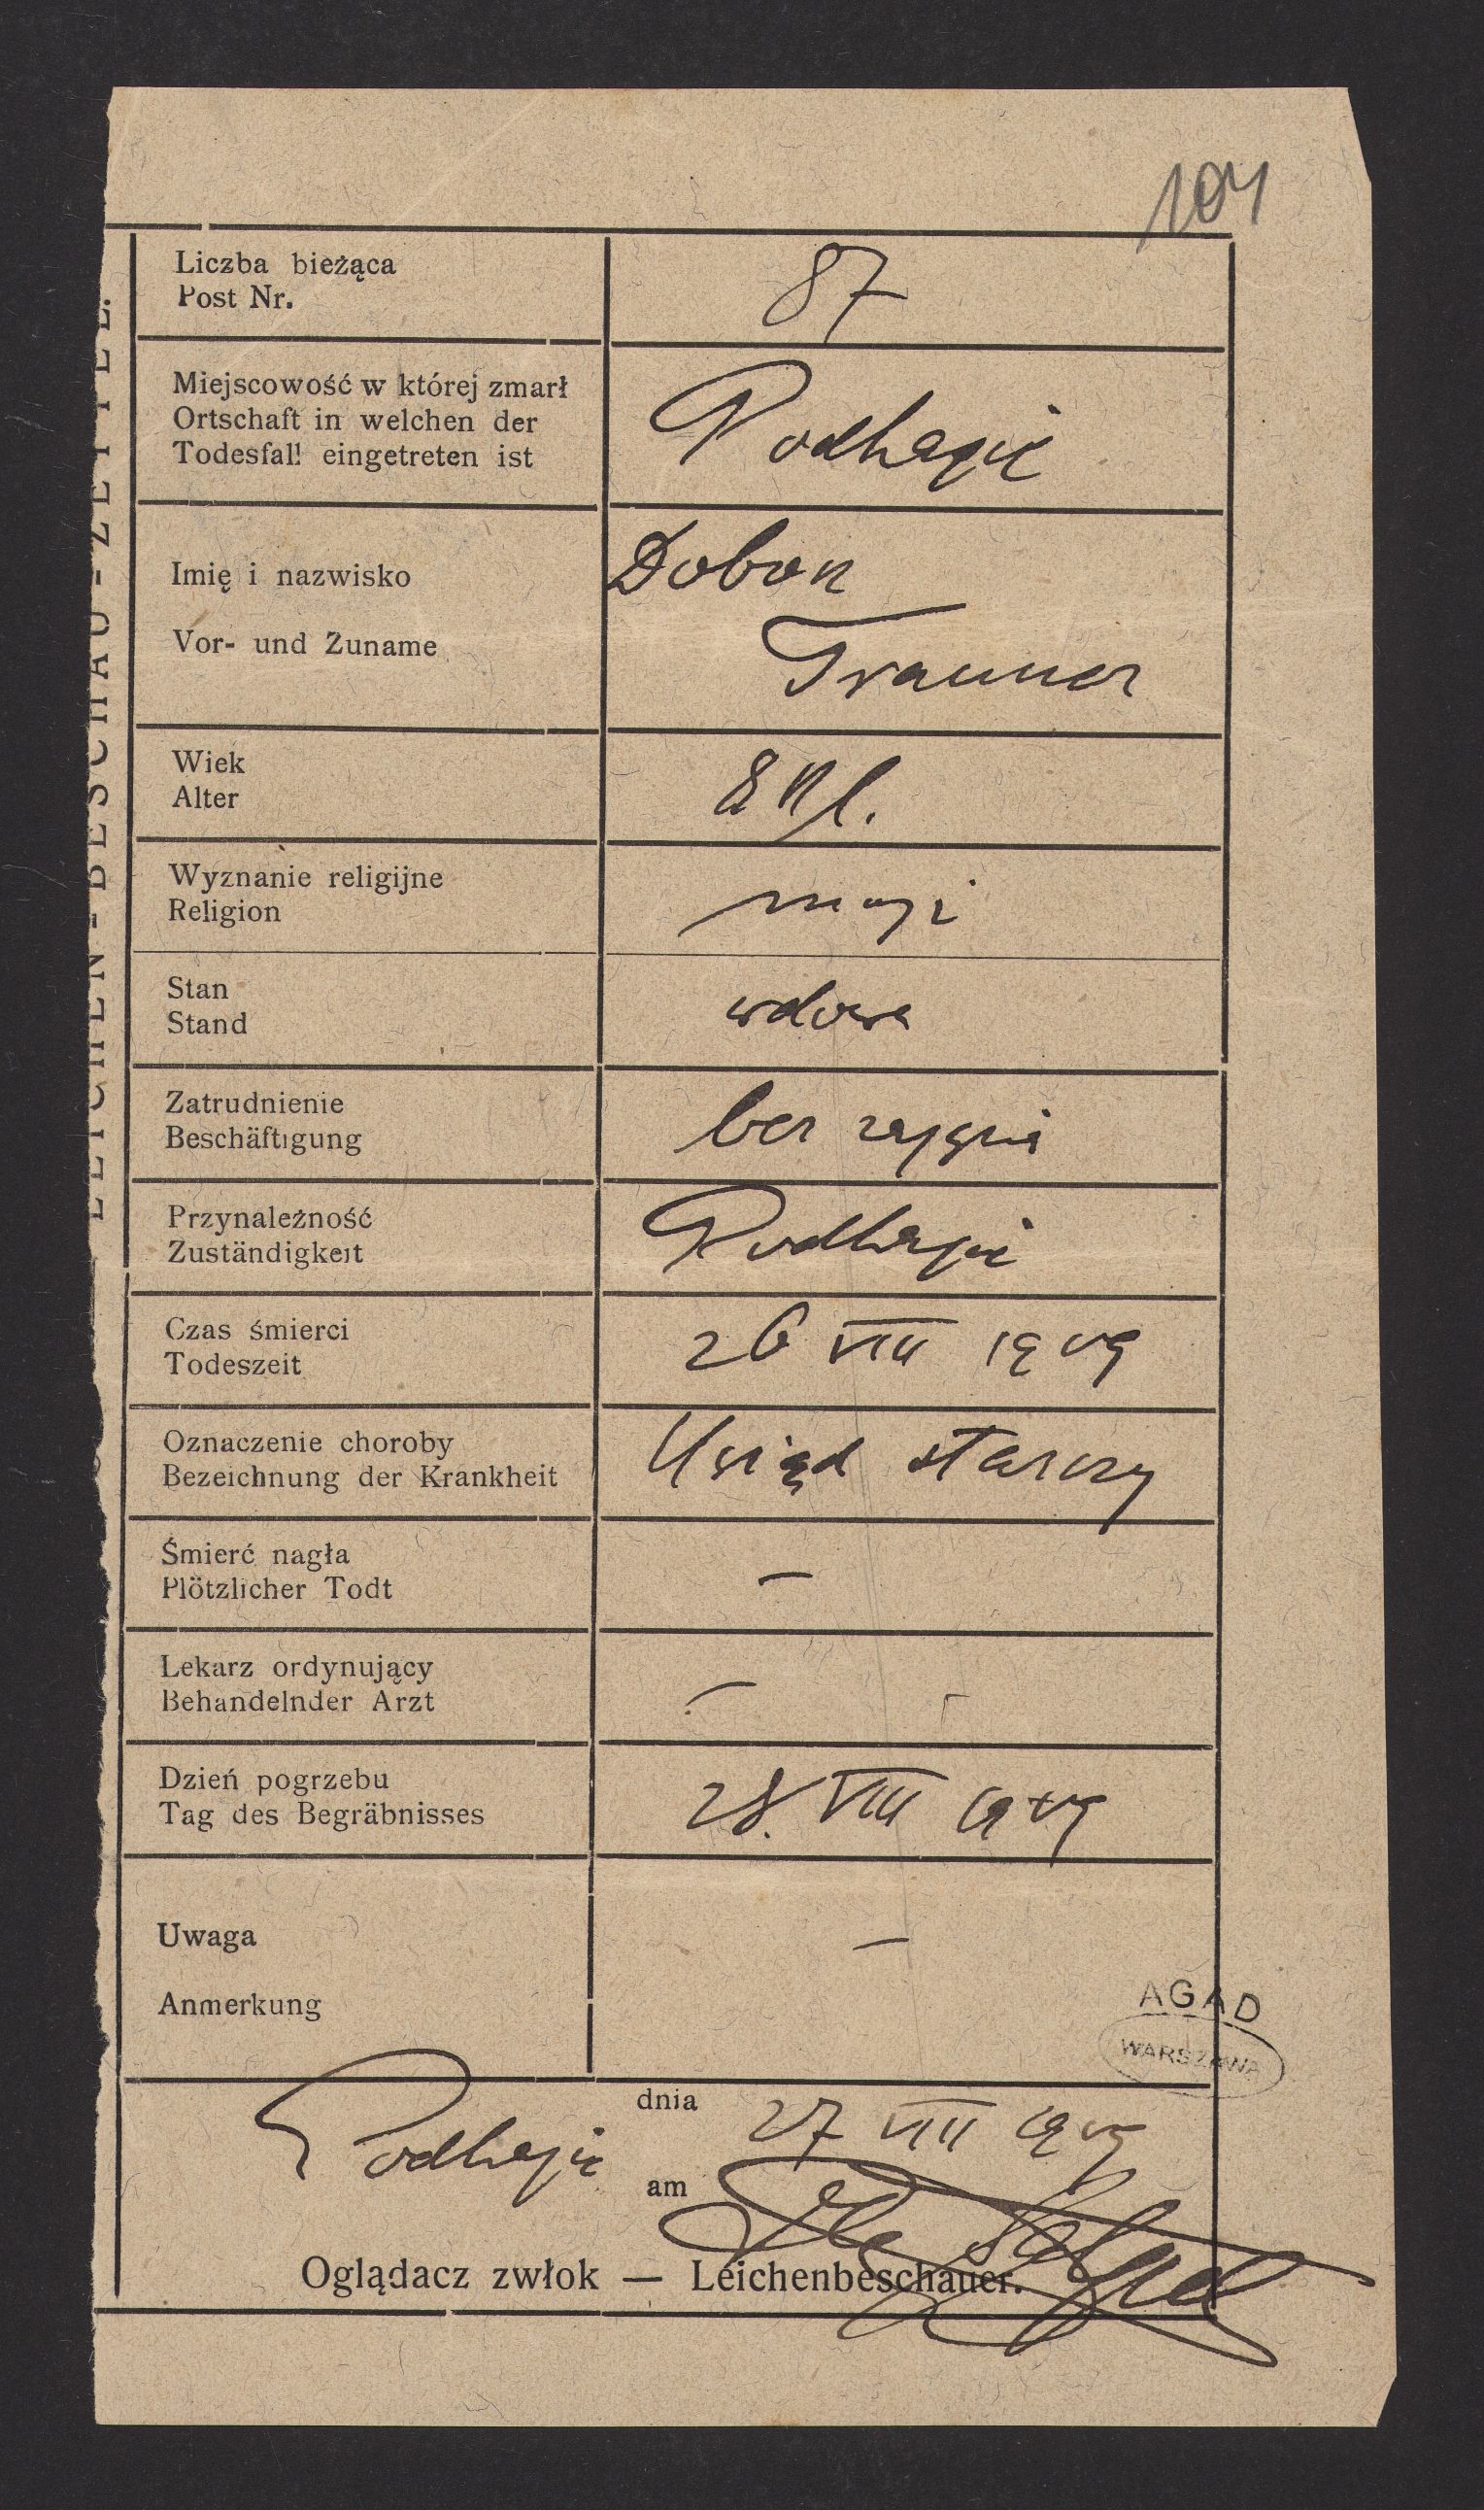 104
LEICHEN-BESCHAU-ZETTEL.
Liczba bieżąca
Post Nr.
87
Miejscowość w której zmarł
Ortschaft in welchen der
Todesfall eingetreten ist
Podhajce
Imię i nazwisko
Vor- und Zuname
Dobon
Trauner
Wiek
Alter
8 l.
Wyznanie religijne
Religion
mojż
Stan
Stand
wdowa
Zatrudnienie
Beschäftigung
bez zajęcia
Przynależność
Zuständigkeit
Podhajce
Czas śmierci
Todeszeit
26 VIII 1919
Oznaczenie choroby
Bezeichnung der Krankheit
Uwiąd starczy
Śmierć nagła
Plötzlicher Todt
—
Lekarz ordynujący
Behandelnder Arzt
—
Dzień pogrzebu
Tag des Begräbnisses
28. VIII 1919
Uwaga
Anmerkung
—
AGAD
WARSZAWA
Podhajce
dnia
am
27 VIII 1919
Oglądacz zwłok — Leichenbeschauer.